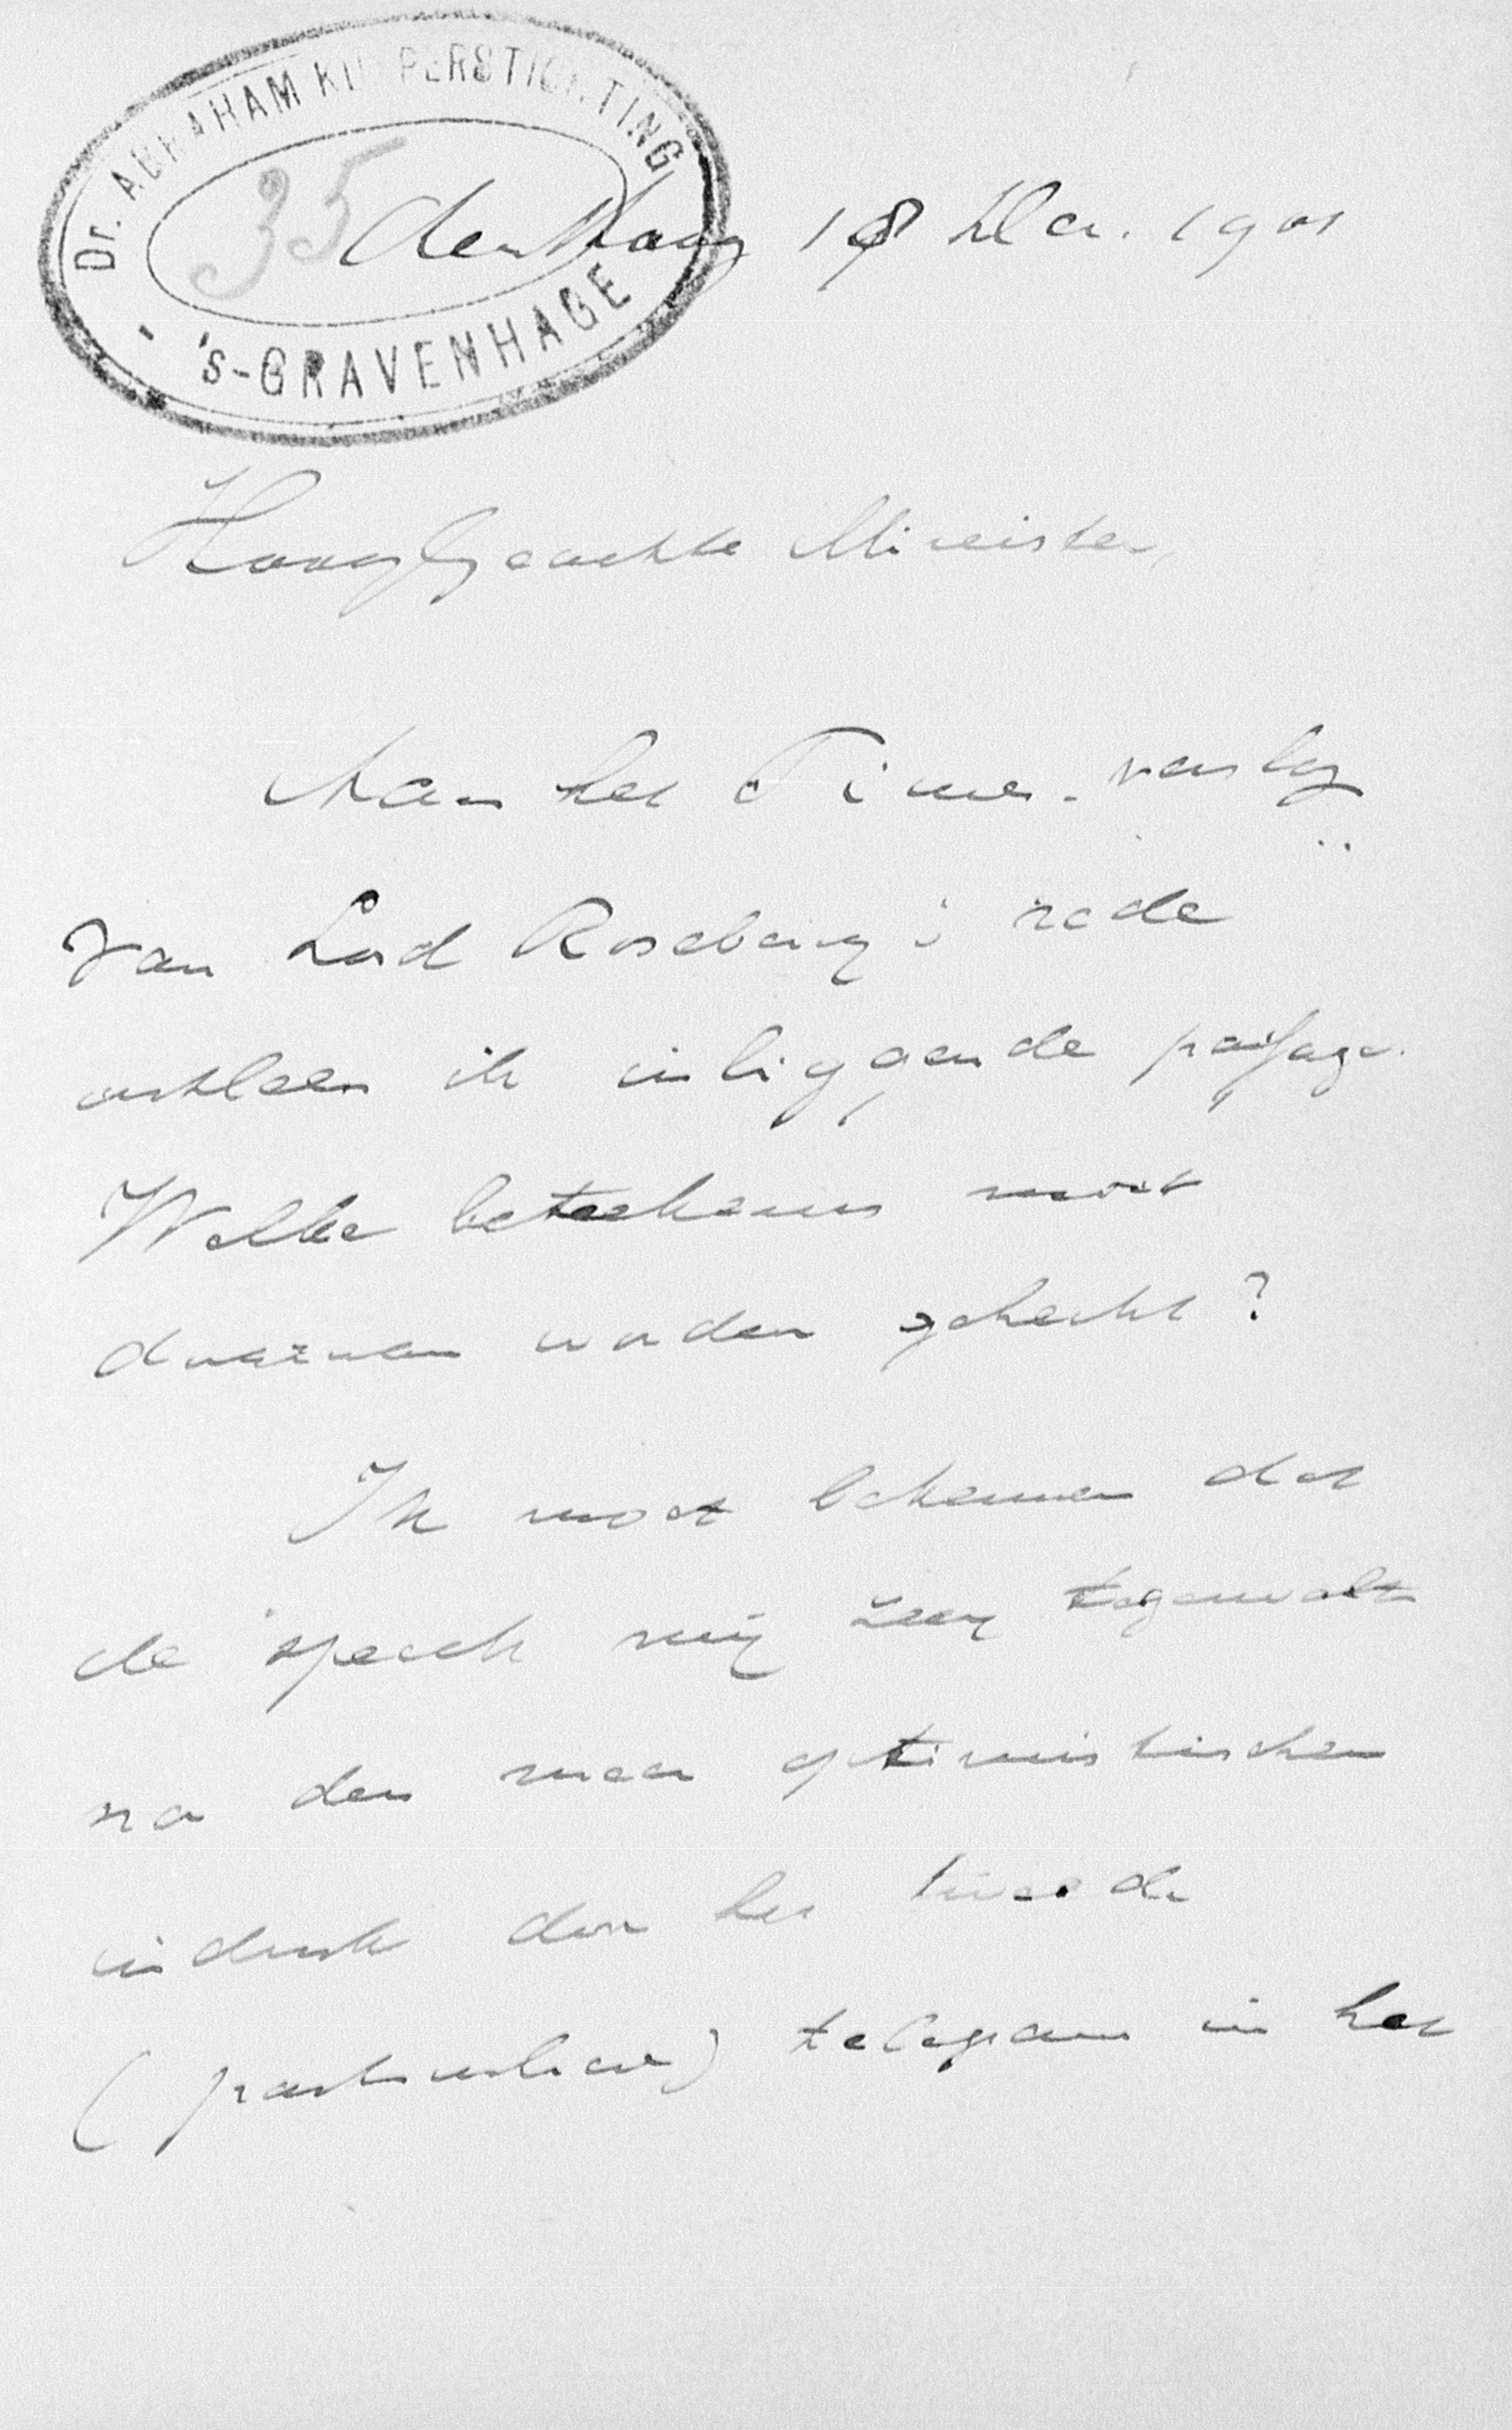 Dr. ABRAHAM KUYPERSTICHTING
35
'S-GRAVENHAGE
den Haag 18 Dec. 1901
Hooggeachte Minister,
Aan het Times-verslag
van Lord Rosebery's rede
ontleen ik inliggende passage.
Welke beteekenis moet
daaraan worden gehecht?
Ik moet bekennen dat
de speech mij zeer tegenvalt
na den meer optimistischen
indruk dien het tweede
(particuliere) telegram in het